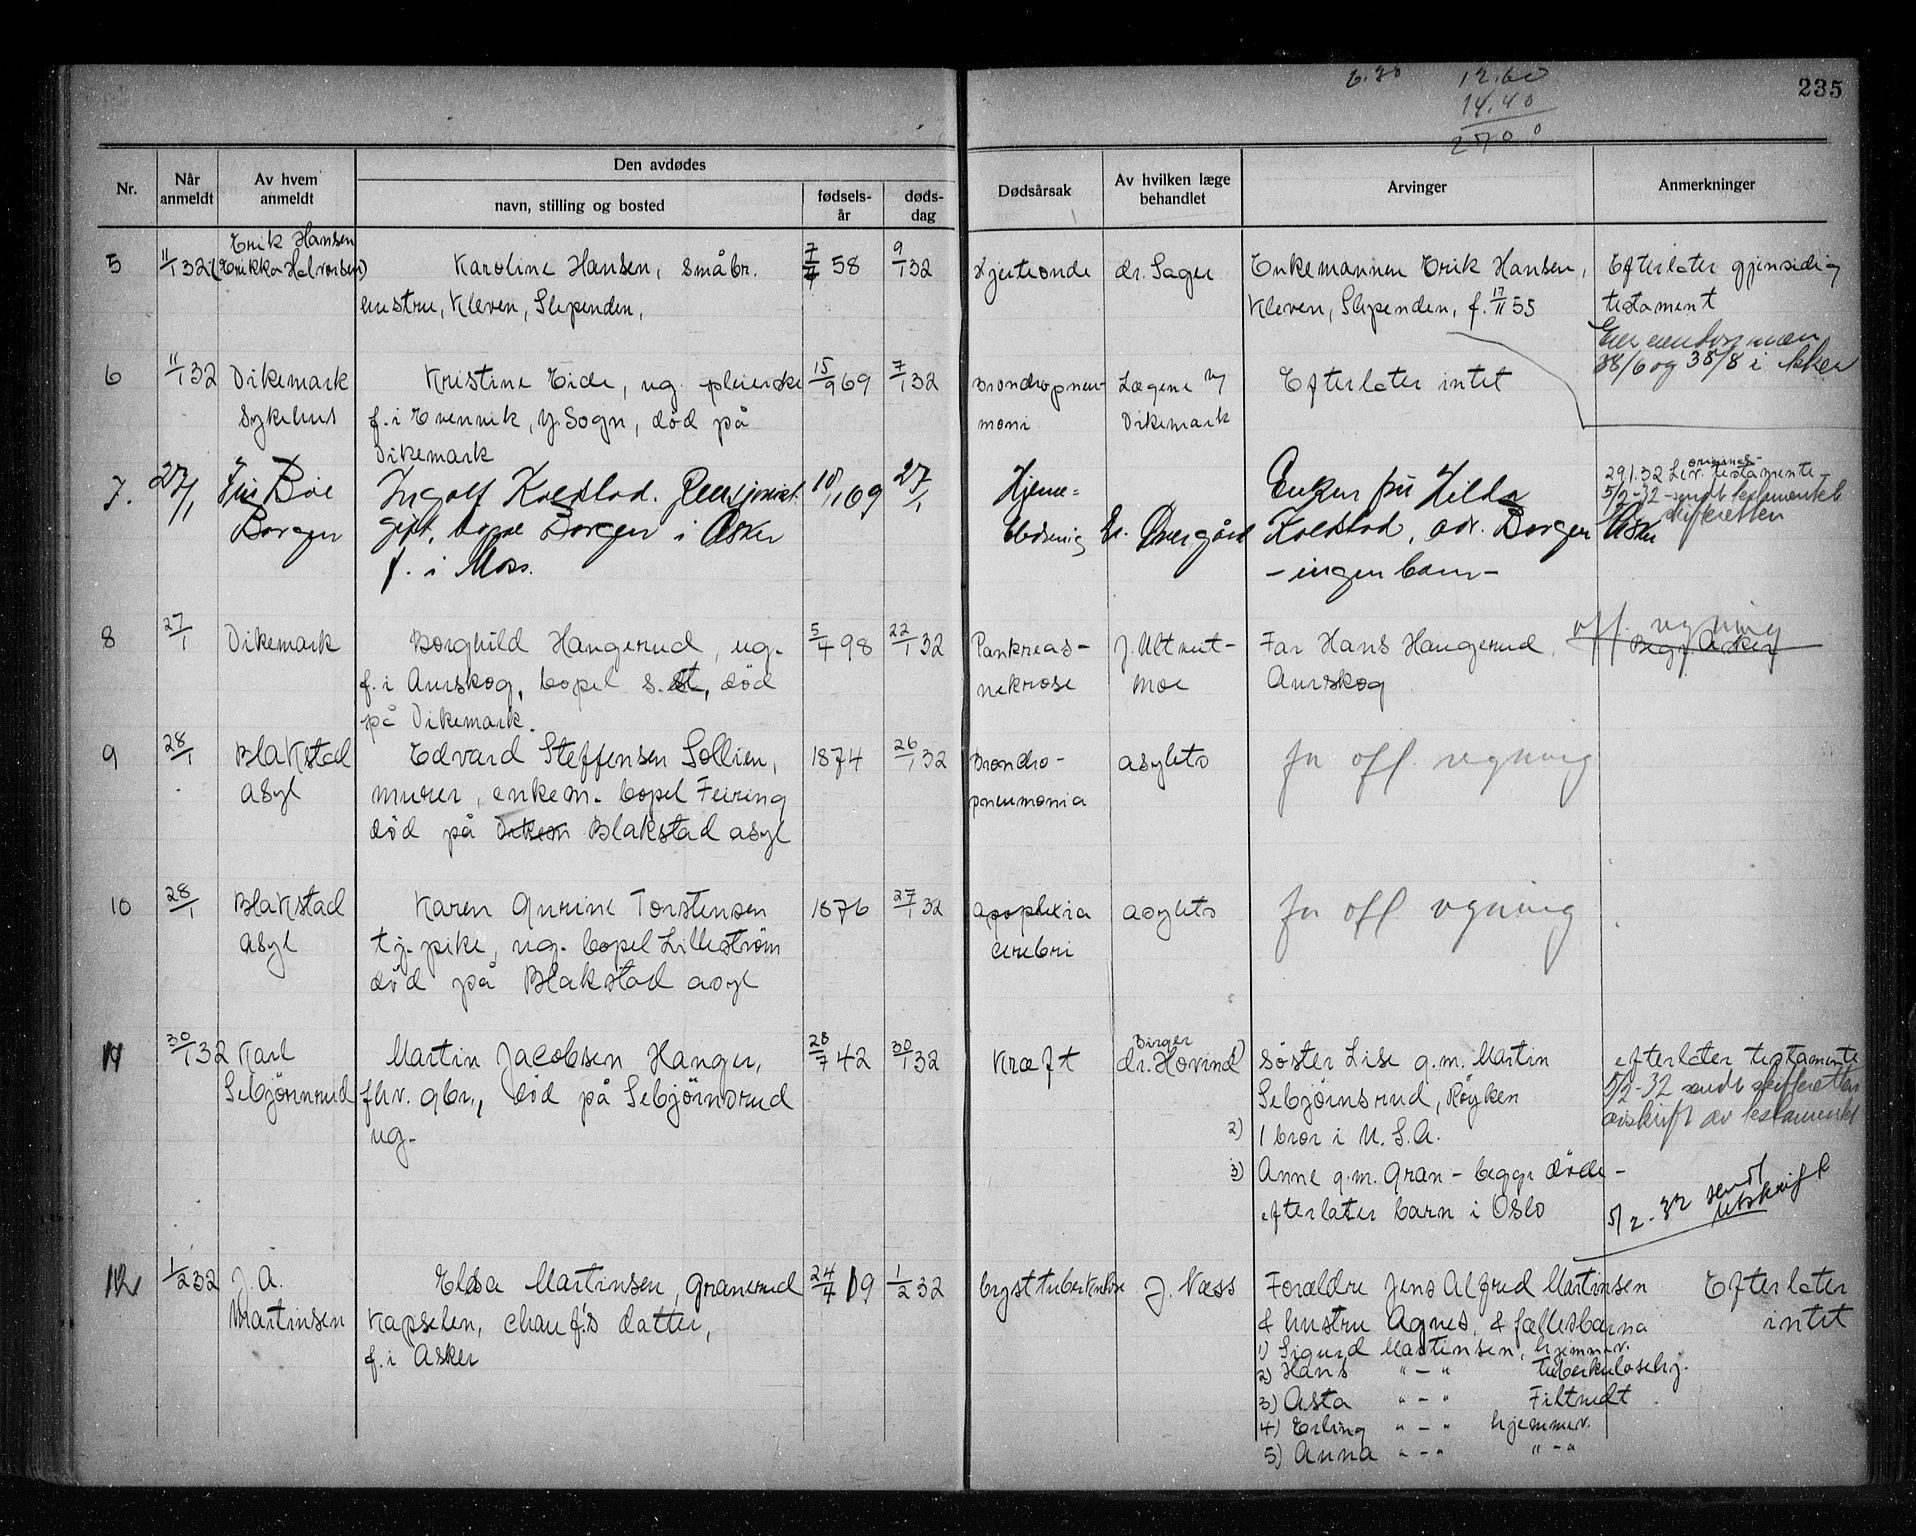 6.30 12.60 235
14.40
Nr. Når anmeldt Av hvem anmeldt Den avdødes navn, stilling og bosted fødselsår dødsdag Dødsårsak Av hvilken læge behandlet Arvinger Anmerkninger
Erik Hansen
5 11/1 32 (Erikka Halvorsen) Karoline Hansen, småbr. 58 9/1 32 Hjerteonde dr. Sager Enkemannen Erik Hansen, Efterlater gjensidig
hustru, Kleven, Slependen, Kleven, Slependen, f. 17/11 55 testament
38/6 og 38/8 i Asker
6 11/1 32 Dikemark Kristine Eide, ug. pleierske 15/9 69 7/1 32 Brondropneu- Lægene v/ Efterlater intet
sykehus f. i Evenvik, Y. Sogn, død på moni Dikemark
Dikemark
7. 27/1 Boe Ingolf Kolstad. Pensjonist. 10/1 69 27/1 Hjerne= Enken fru Hilda 29.1.32 Lev. original- testamente
Borgen gift, bopel Borgen i Asker blødning Dr. Øvergård Kolstad, adr. Borgen Asker 5/2-32 sendt testamentet
skifteretten
f. i Moss. - ingen barn -
8 27/1 Dikemark Borghild Hangerud, ug. 5/4 98 22/1 32 Pankreas- J. Ultveit- Far Hans Haugerud, off. regning
Begr. Asker
f. i Aurskog, bopel s. st, død nekrose Moe Aurskog
på Dikemark.
9 28/1 Blakstad Edvard Steffensen Sollien, 1874 26/1 32 Brondro- asylets for off. regning
asyl murer, enkem. bopel Feiring pneumonia
død på Dikem Blakstad asyl
10 28/1 Blakstad Karen Gurine Torstensen 1876 27/1 32 apoplexia asylets for off regning
asyl tj. pike, ug. bopel Lillestrøm cerebri
død på Blakstad asyl
11 30/1 32 Karl Martin Jacobsen Hanger, 28/7 42 30/1 32 Kræft Birger dr. Hovind 1) Søster Lise g.m. Martin efterlater testamente
Sebjørnsrud fhv. gbr., død på Sebjørnsrud Sebjørnsrud, Røyken 5/2-32 sendt skifteretten
ug. 2) 1 bror i U.S.A. avskrift av testamentet
3) Anne g.m. Gran - begge døde -
efterlater barn i Oslo 5/2-32 sendt utskrift
12 1/2 32 J.A. Elsa Martinsen, Granerud 24/4 19 1/2 32 brysttuberkulose J. Næss Forældre Jens Alfred Martinsen Efterlater
Martinsen Kapselen, chauf's datter, & hustru Agnes, & fællesbarna intet
f. i Asker 1) Sigurd Martinsen, hjemmev.
2) Hans " - " tuberkulosehj.
3) Asta " - " Filtvedt
4) Erling " - " hjemmev.
5) Anna " - " " - "